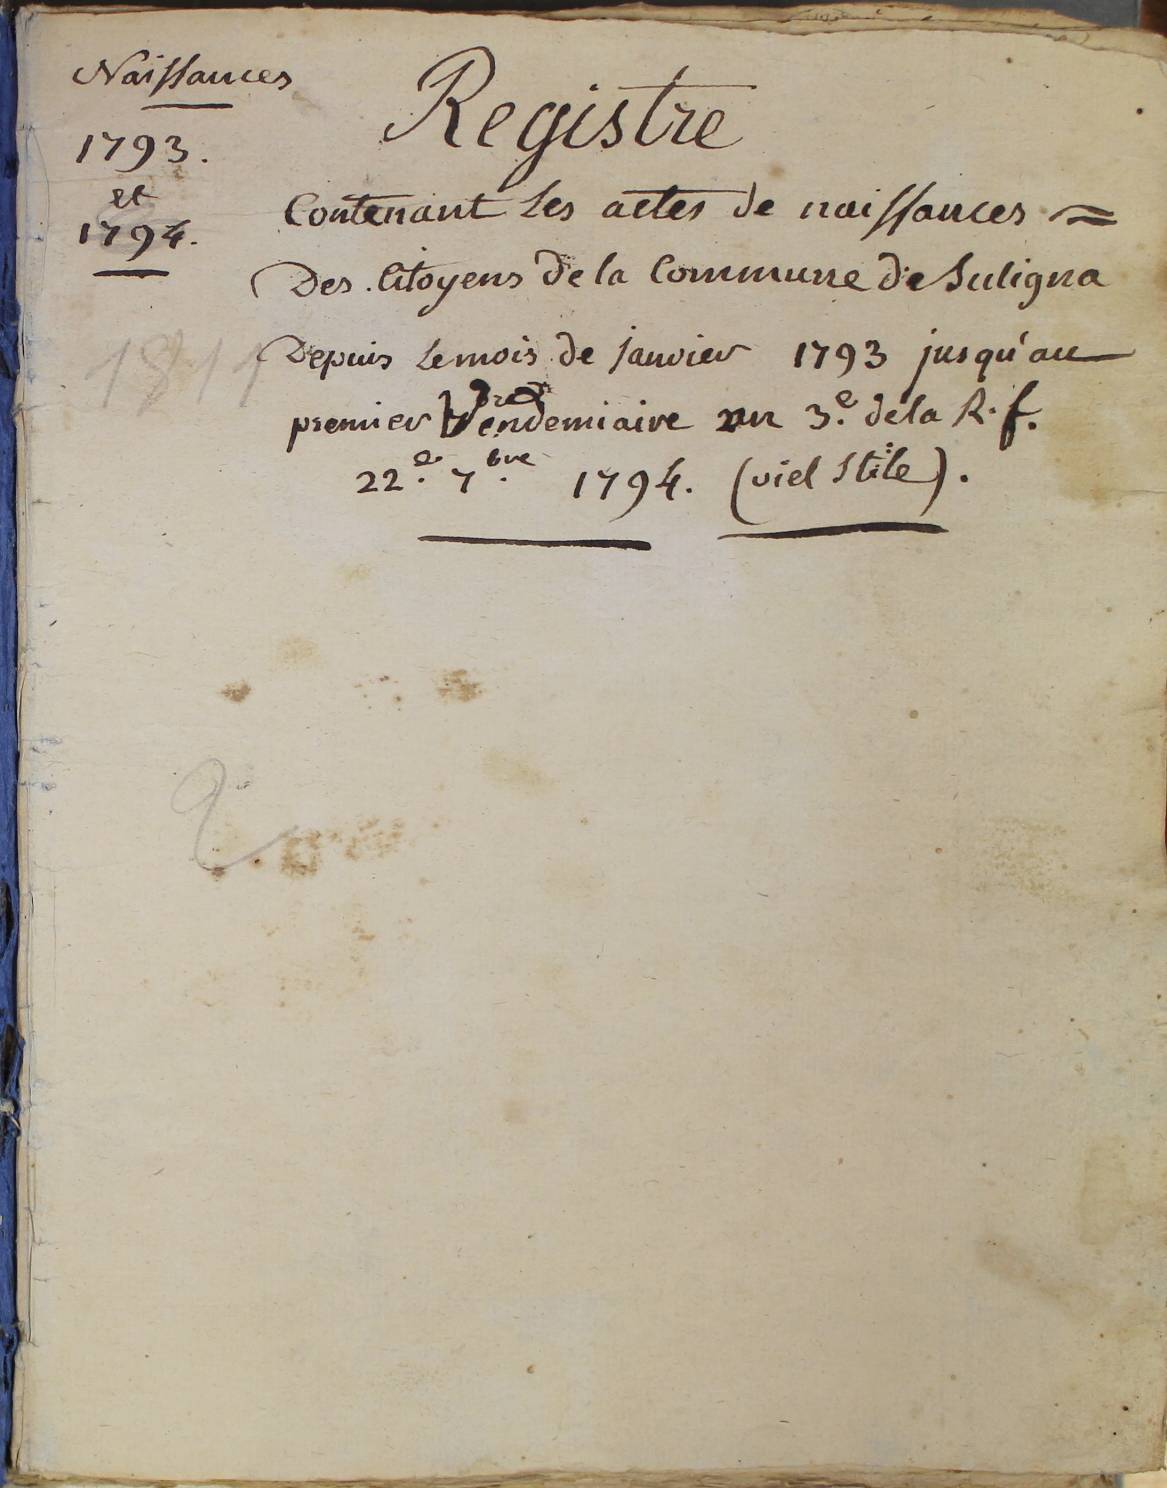 Naissances
1793.
et
1794.
Registre
Contenant les actes de naissances =
Des Citoyens de la Commune de Suligna
Depuis le mois de janvier 1793 jusqu'au
premier Vendemiaire an 3.e de la R. f.
22.e 7.bre 1794. (viel Stile).